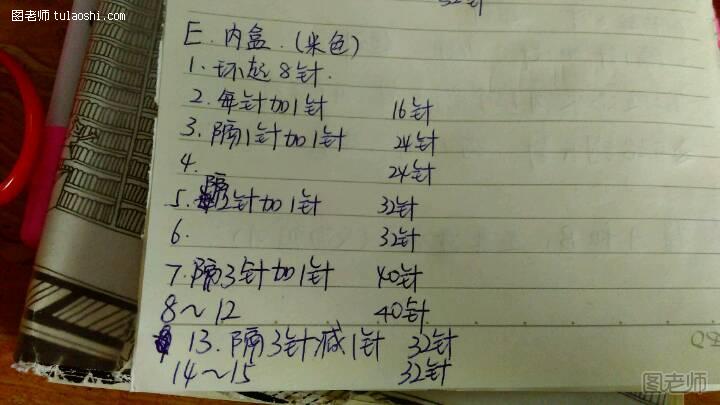 图老师 tulaoshi.com
32针
E. 内盒.(米色)
1. 环起8针.
2. 每针加1针 16针
3. 隔1针加1针 24针
4. 24针
5. 隔2针加1针 32针
6. 32针
7. 隔3针加1针 40针
8~12 40针
13. 隔3针减1针 32针
14~15 32针
图老师